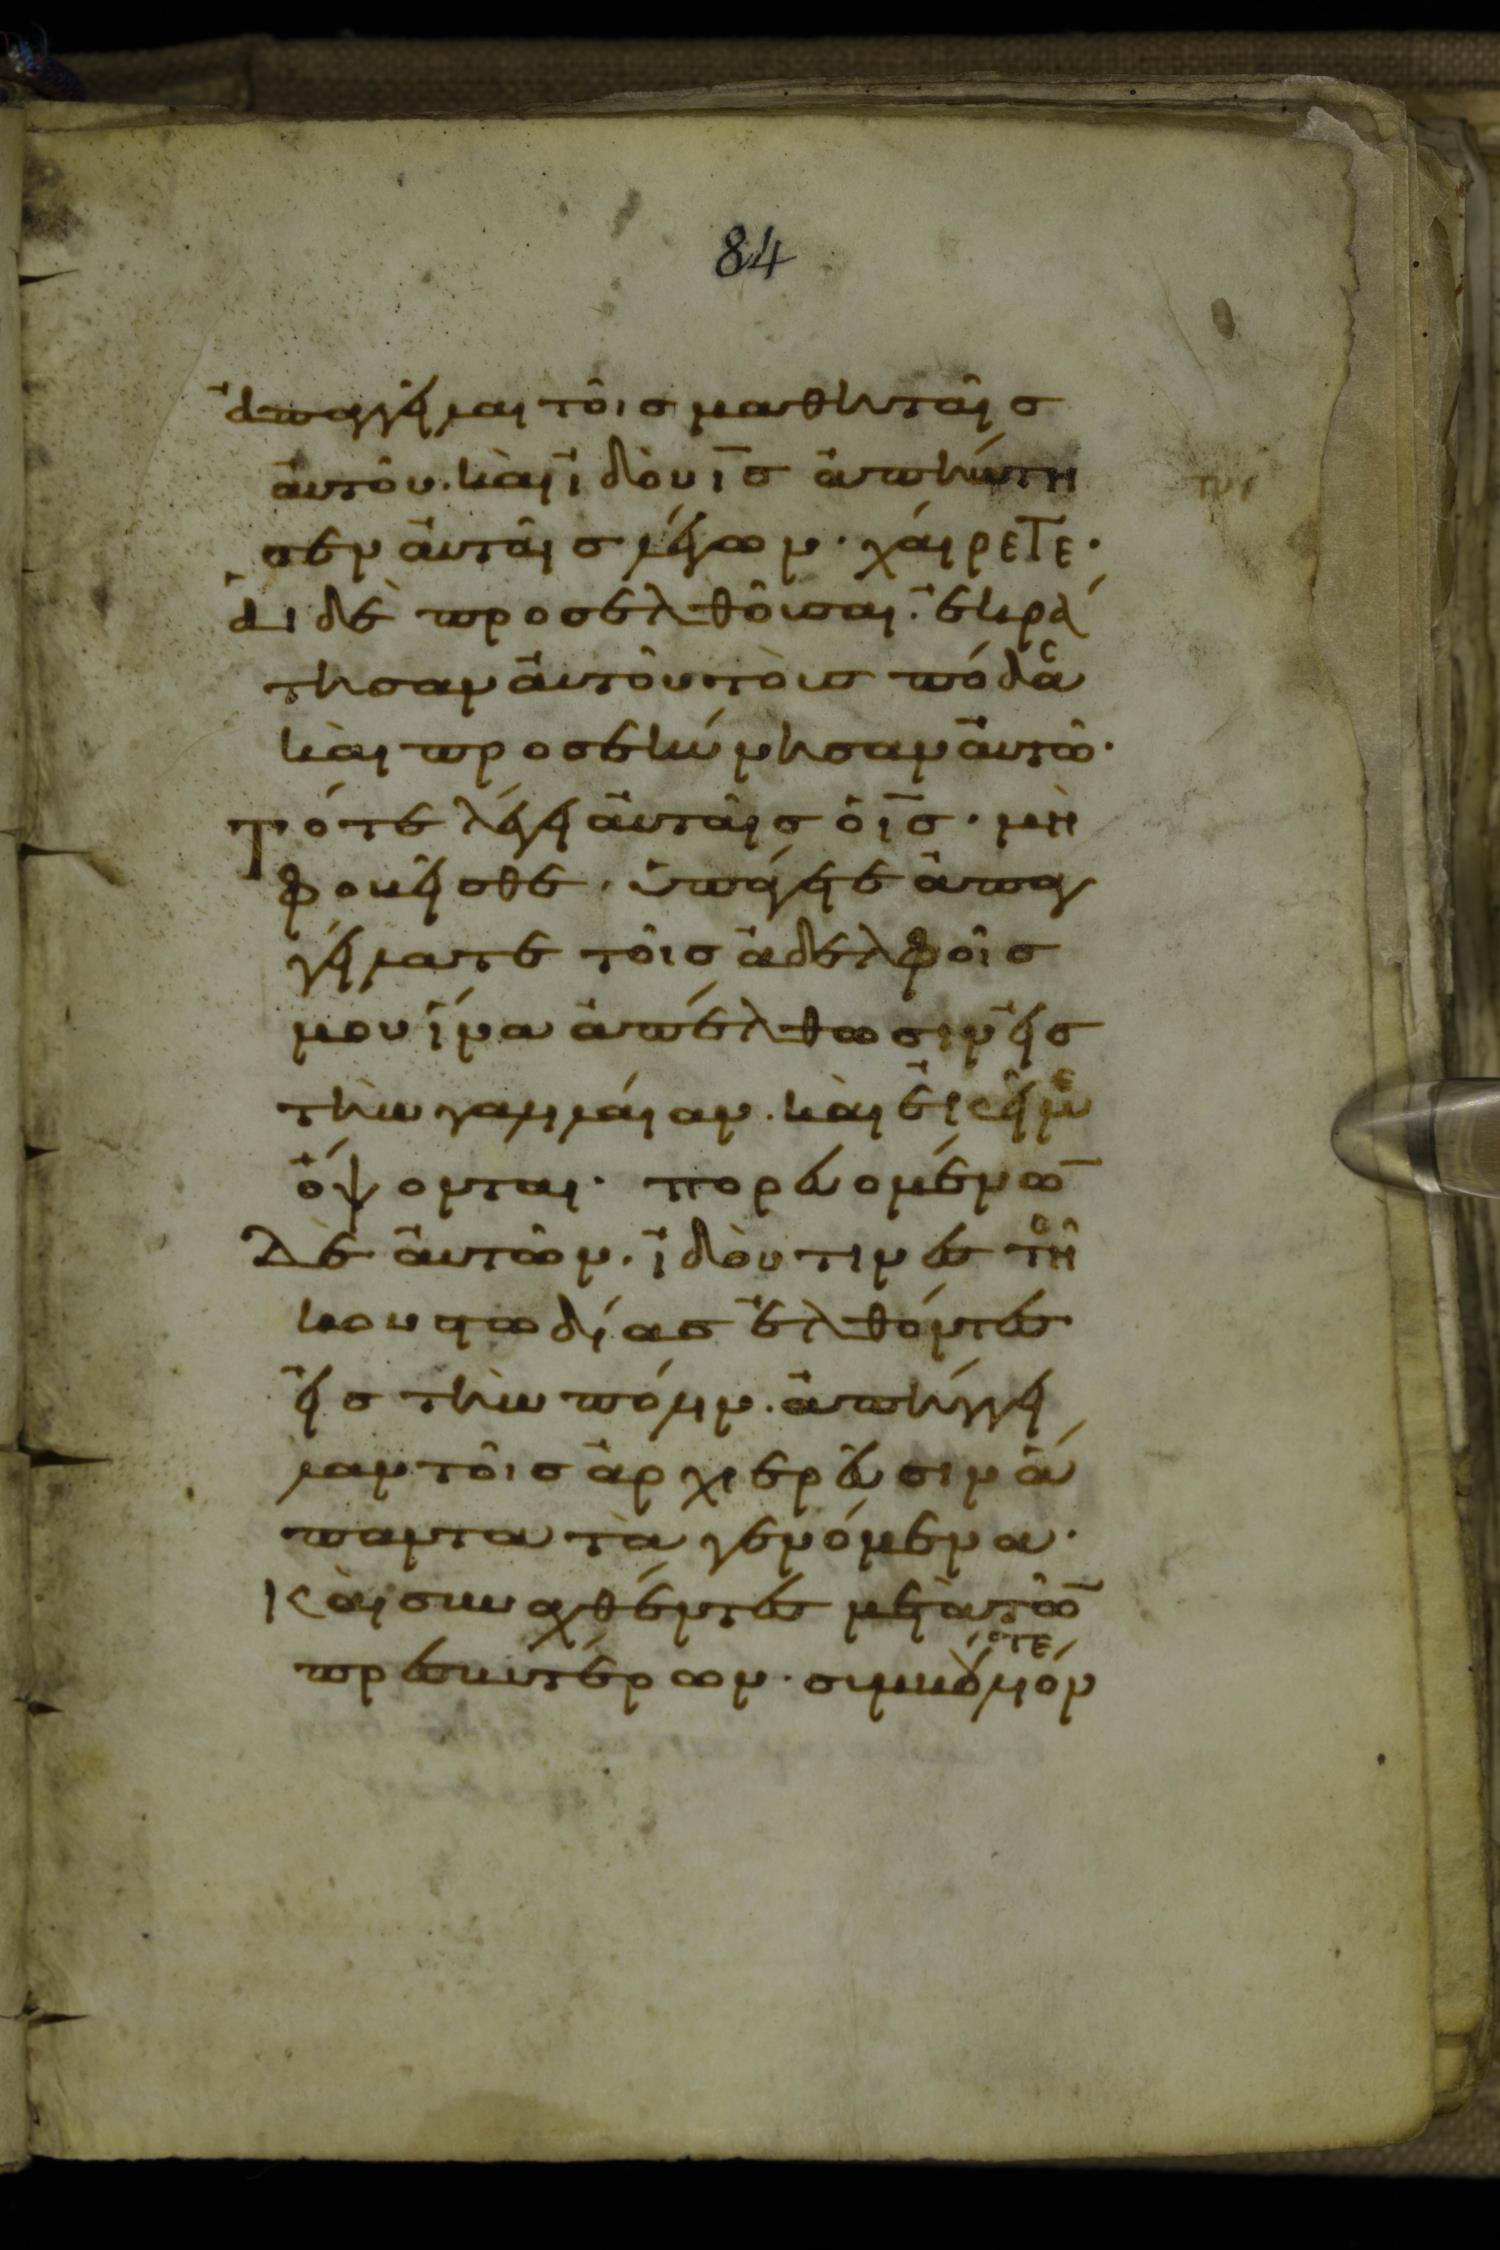 84
ἀπαγγεῖλαι τοῖσ μαθηταῖσ
αὐτοῦ. καὶ ἰδοὺ ισ ἀπήντη
σεν αὐταῖσ λέγων· χαίρετε·
ἁι δὲ προσελθοῦσαι. ἐκρά
τησαν αὐτοῦ τοὺσ πόδας
καὶ προσεκύνησαν αὐτῶ·
τότε λέγει αὐταῖσ ὁ ισ· μὴ
φοβεῖσθε. ὑπάγετε ἀπαγ
γείλατε τοῖσ ἀδελφοῖσ
μου ἵνα ἀπέλθωσιν εἰσ
τὴν γαλιλαίαν. καὶ ἐκεῖ με
ὄψονται· πορευομένω
δὲ αὐτῶν. ἰδού τινεσ τῆς
κουστωδίασ ἐλθόντεσ
εἰσ τὴν πόλιν. ἀπήγγει
λαν τοῖσ ἀρχιερεῦσιν ἅ
παντα τὰ γενόμενα·
καὶ συναχθέντεσ μετὰ τῶ
πρεσβυτέρων. συμβούλιόν τε